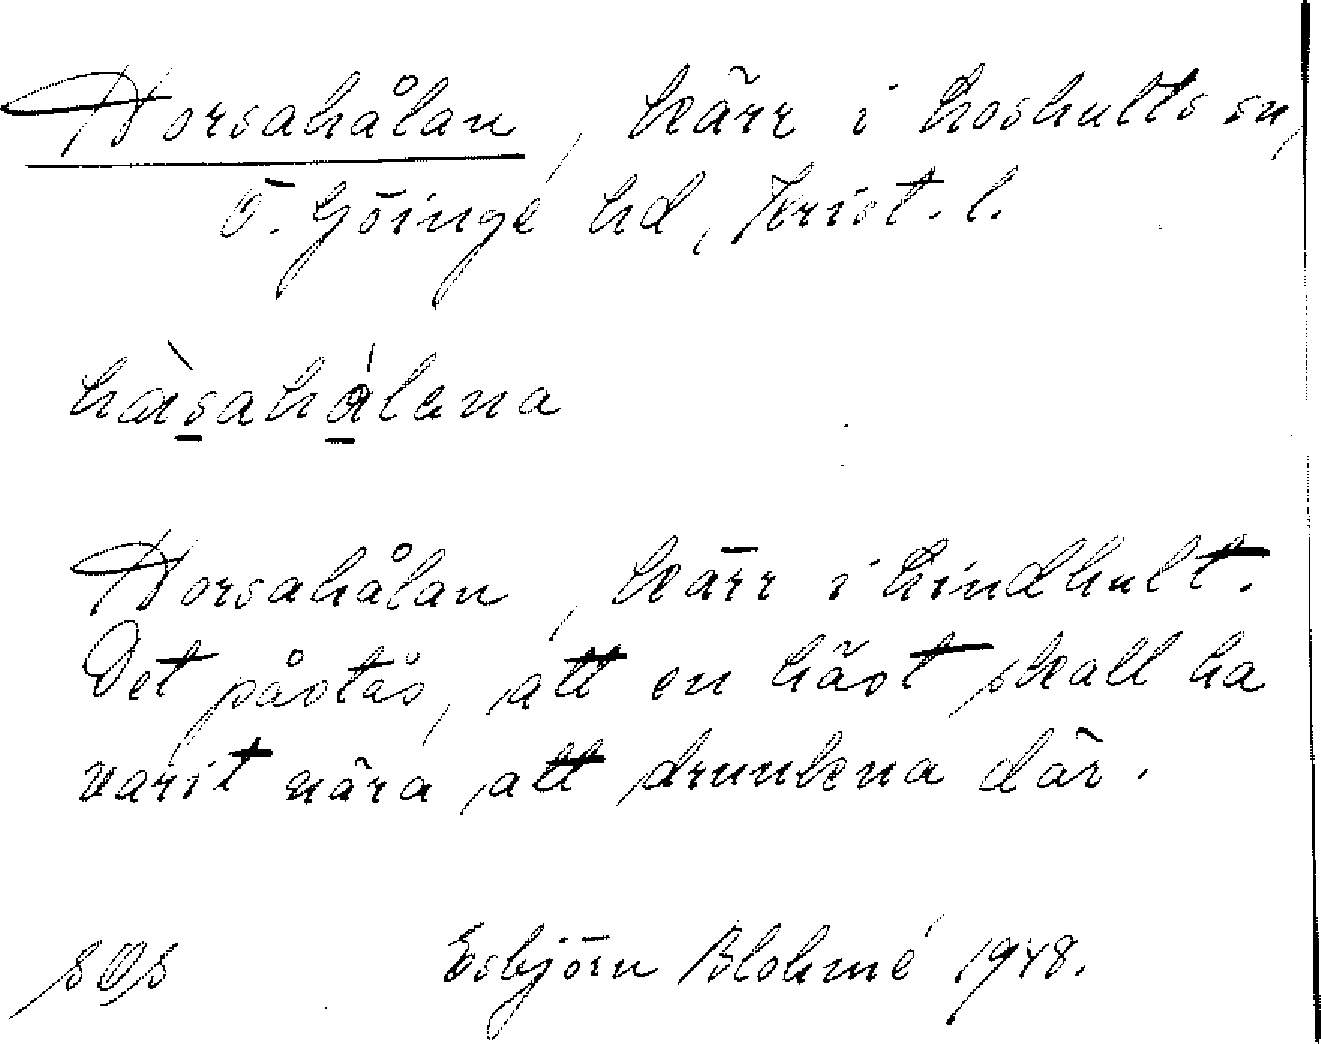 Horsahålan, kärr i Loshults sn,
Ö. Göinge hd, Krist. l.
Horsahålan, kärr i Lindhult.
Det påstås, att en häst skall ha
varit nära att drunkna där.
Esbjörn Blohmé 1948.